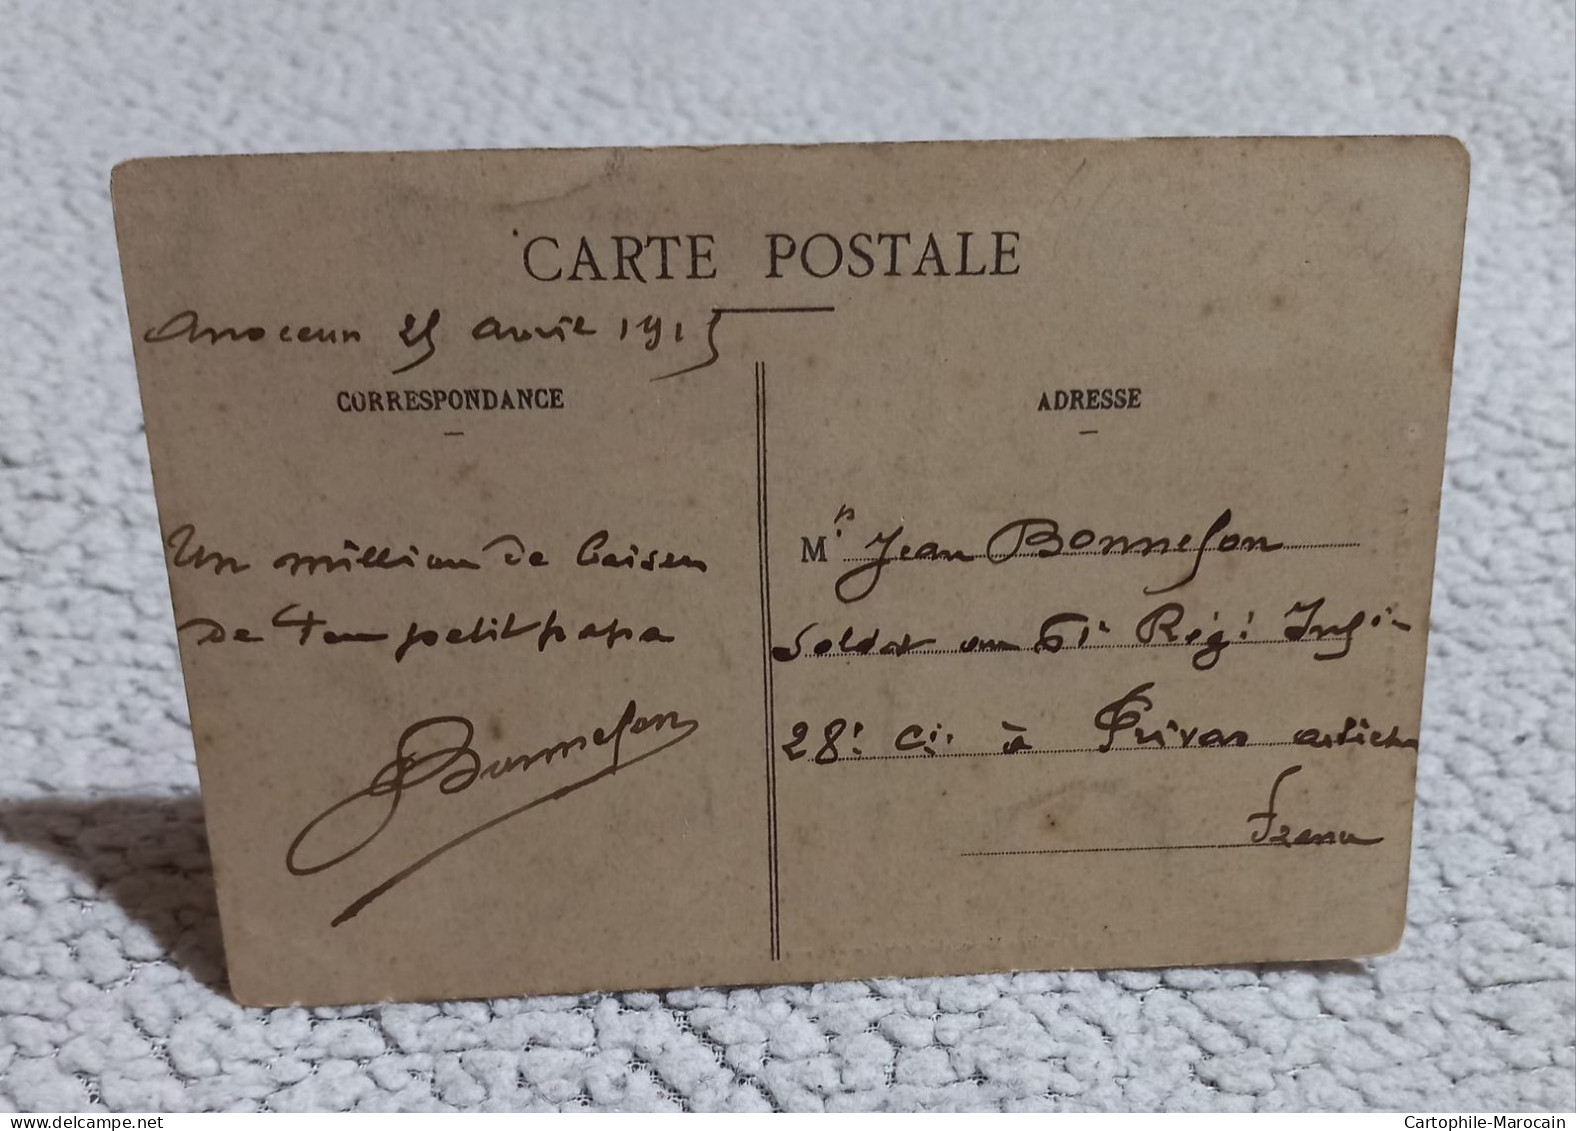 CARTE POSTALE
Anoceur 25 avril 1915
CORRESPONDANCE
Un million de baisers
de ton petit papa
Bonnefon
ADRESSE
Mr Jean Bonnefon
Soldat au 61e Régi Infie
28e Cie à Privas ardèche
France
Cartophile-Marocain